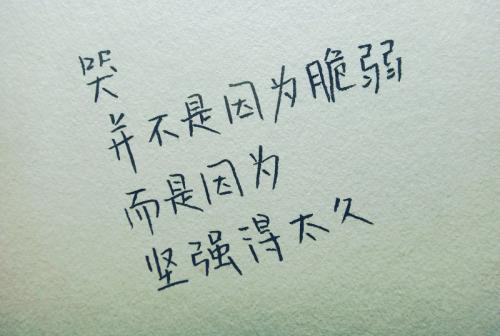 哭
并不是因为脆弱
而是因为
坚强得太久